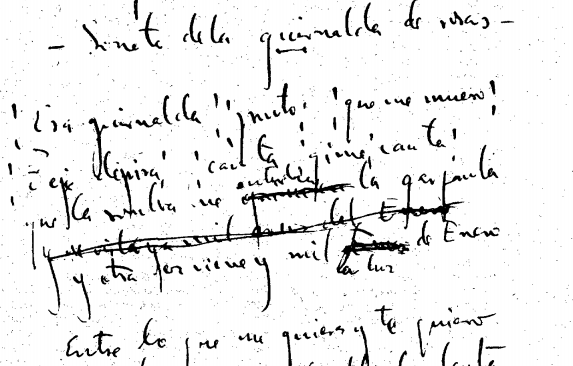 - Soneto de la guirnalda de rosas -
¡Esa guirnalda! ¡pronto! ¡que me muero!
¡Teje deprisa! ¡canta! ¡gime! ¡canta!
que la sombra me enturbia la garganta
y otra vez viene y mil la luz de Enero
Entre lo que me quieres y te quiero